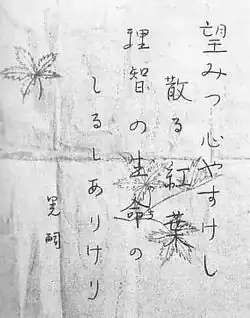 望みつ心やすけし
散る紅葉
理智の生命の
しるしありけり
晃嗣